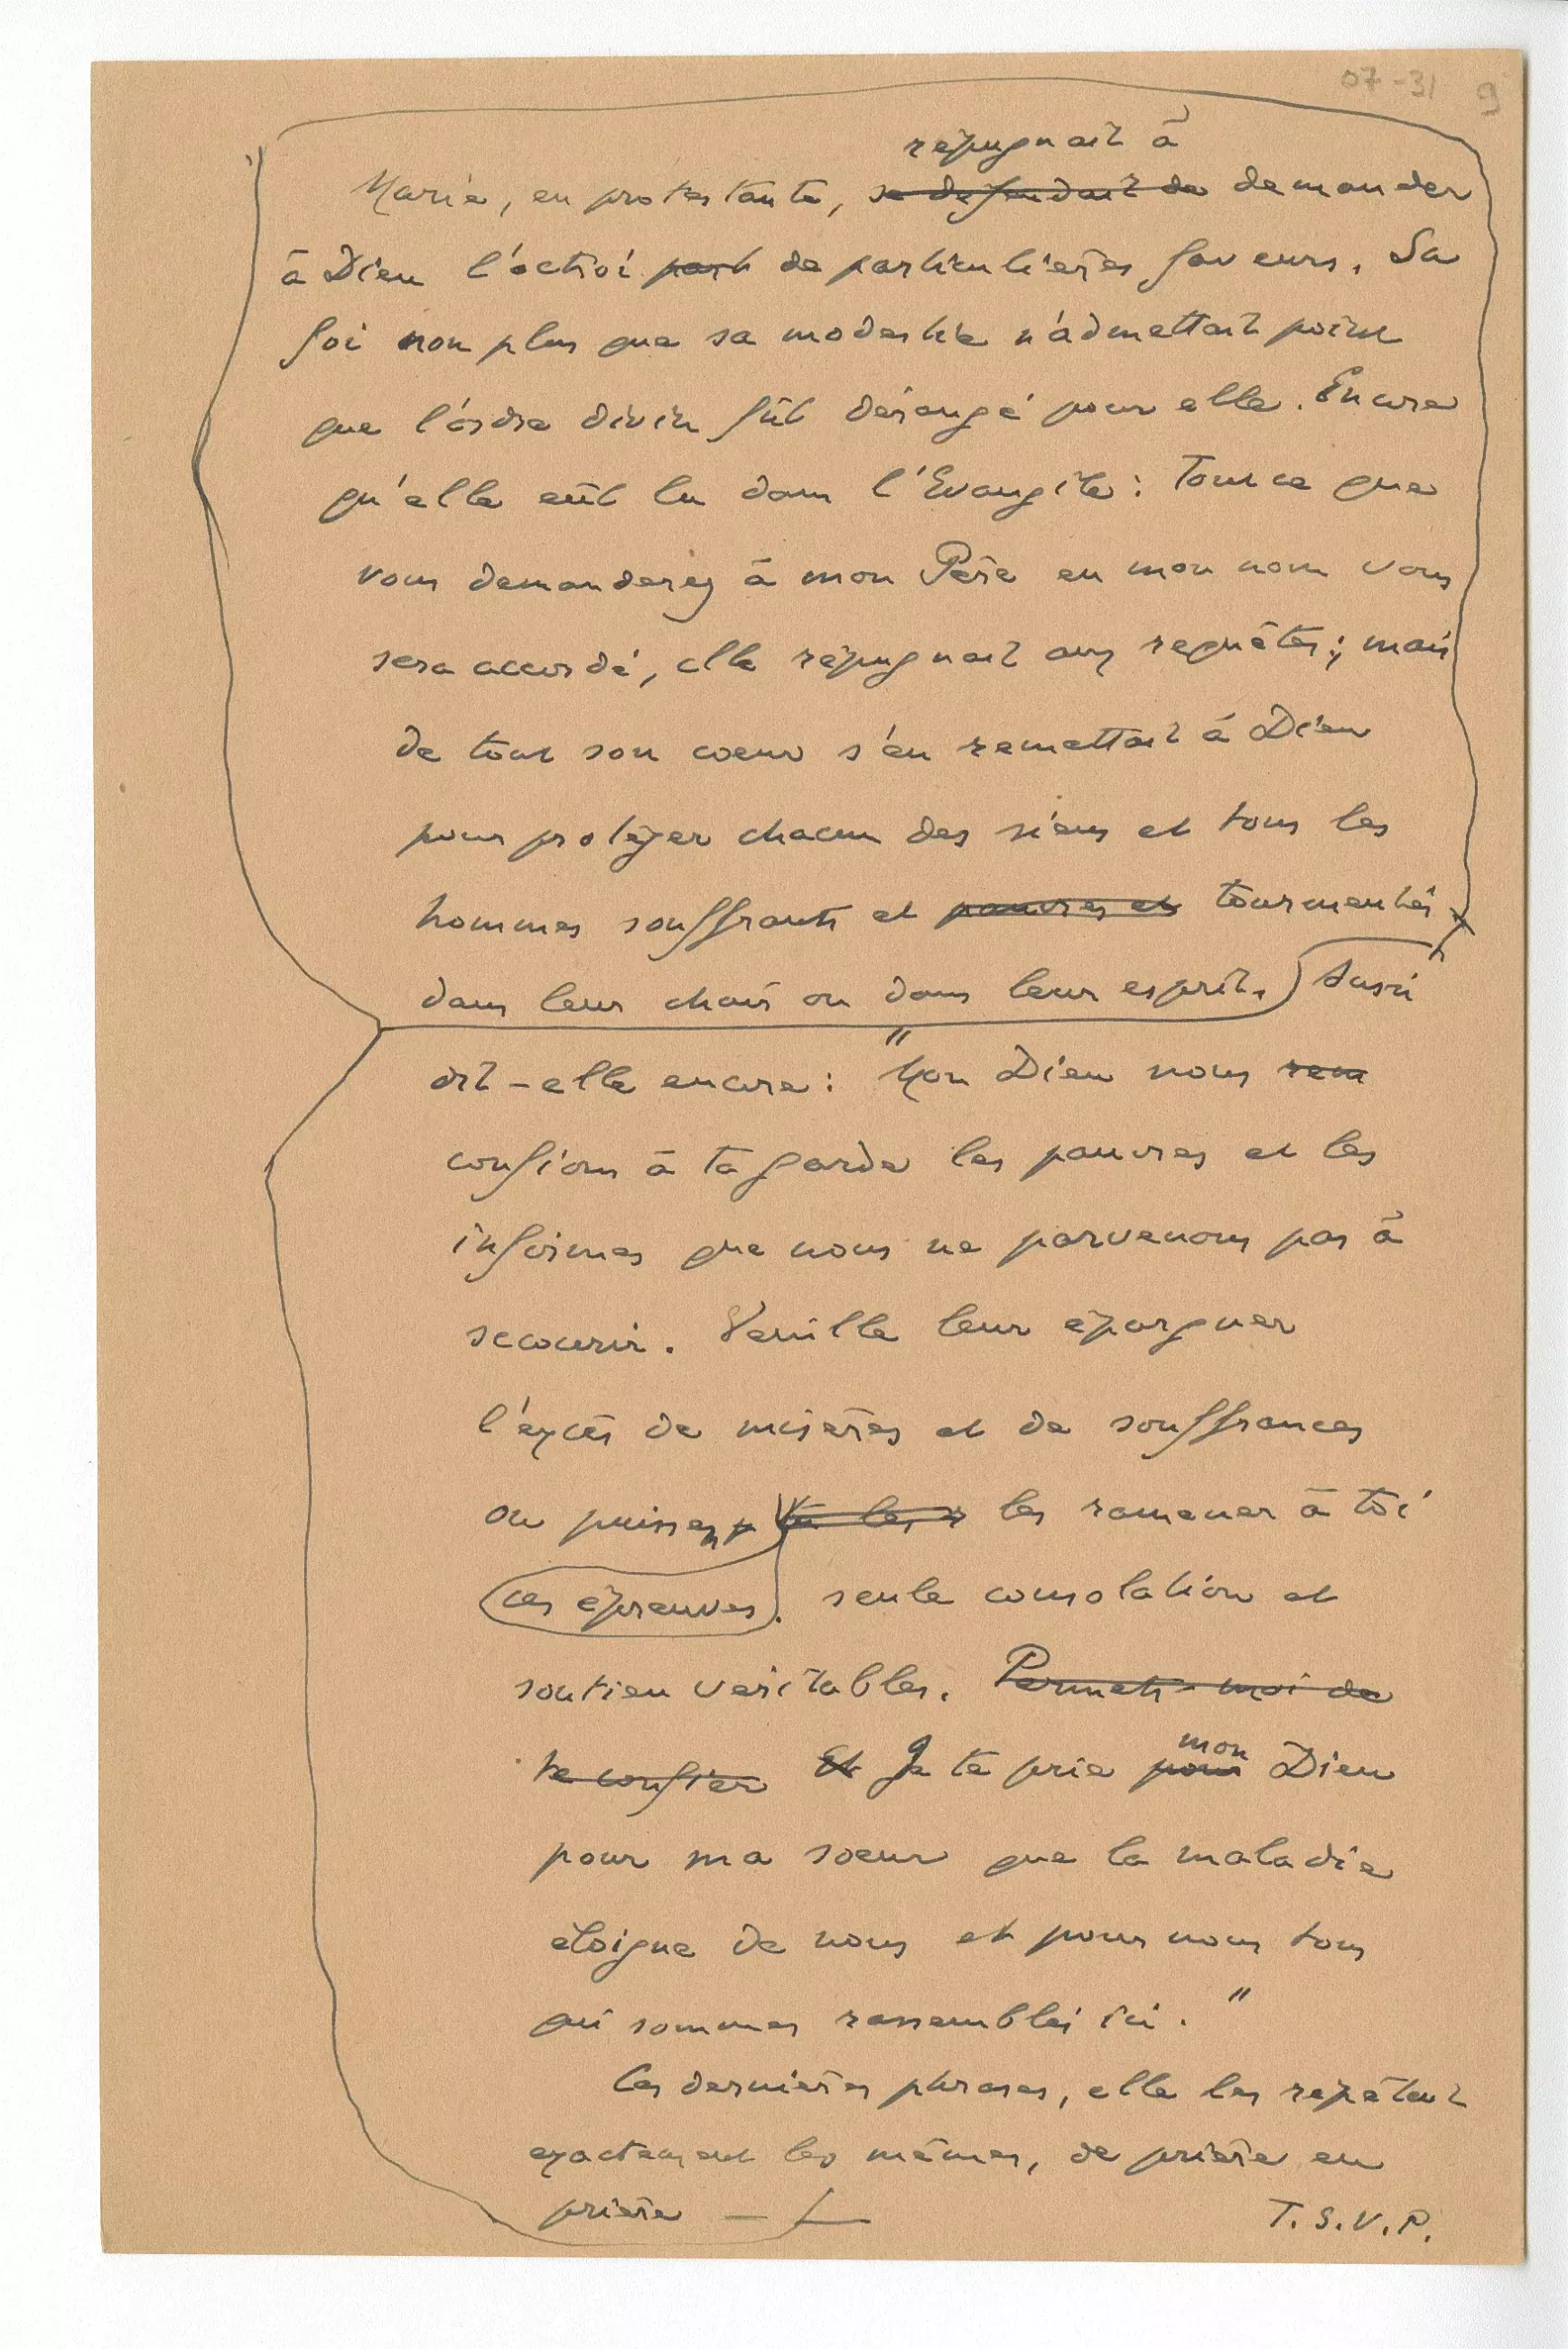 07-31 9
répugnait à
Marie, en protestante, se défendait de demander
à Dieu l'octroi part de particulières faveurs. Sa
foi non plus que sa modestie n'admettait point
que l'ordre divin fût dérangé pour elle. Encore
qu'elle eût lu dans l'Evangile : Tout ce que
vous demanderez à mon Père en mon nom vous
sera accordé, elle répugnait aux requêtes ; mais
de tout son coeur s'en remettait à Dieu
pour protéger chacun des siens et tous les
hommes souffrants et pauvres et tourmentés
dans leur chair ou dans leur esprit. Aussi
dit-elle encore : "Mon Dieu nous rem
confions à ta garde les pauvres et les
infirmes que nous ne parvenons pas à
secourir. Veuille leur épargner
l'excès de misères et de souffrances
ou puissent tu les r les ramener à toi
ces épreuves. seule consolation et
soutien véritables. Permets-moi de
te confier Et Je te prie pour mon Dieu
pour ma soeur que la maladie
éloigne de nous et pour nous tous
qui sommes rassemblés ici."
Ces dernières phrases, elle les répétait
exactement les mêmes, de prière en
prière —
T.S.V.P.